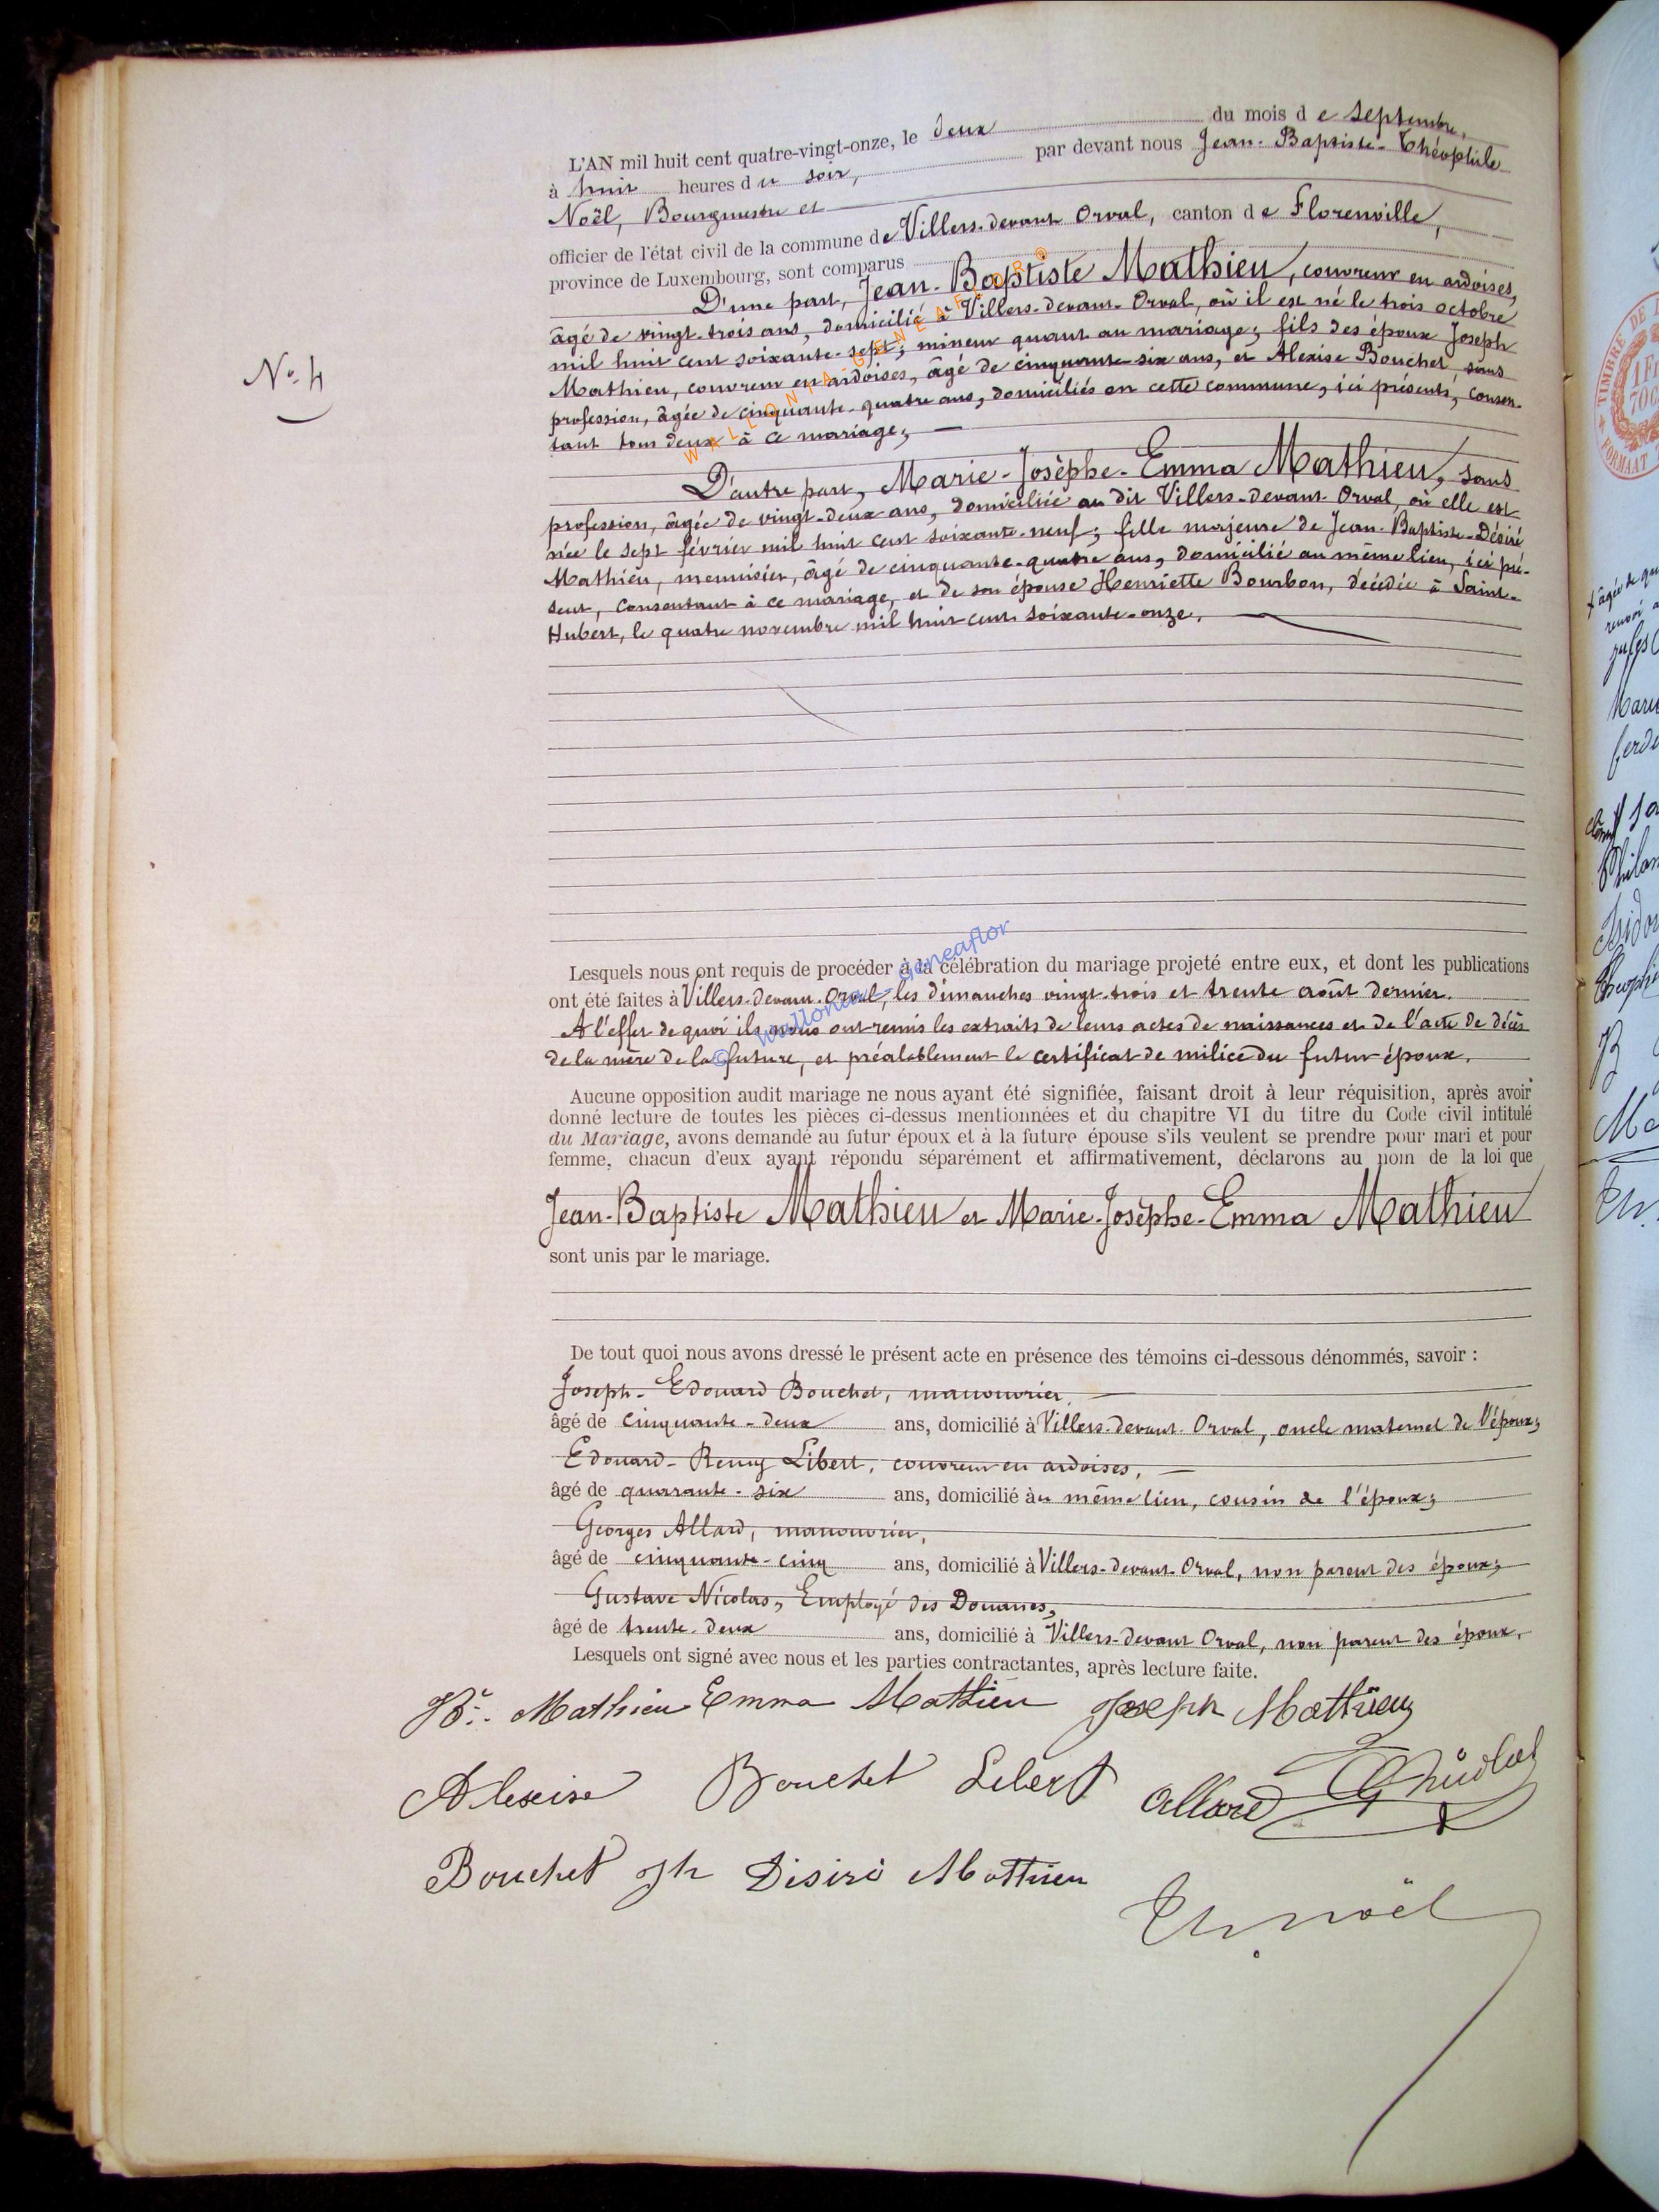 L'AN mil huit cent quatre-vingt-onze, le deux du mois de septembre,
à huit heures du soir, par devant nous Jean-Baptiste-Théophile
Noël, Bourgmestre et
officier de l'état civil de la commune de Villers-devant Orval, canton de Florenville,
province de Luxembourg, sont comparus
D'une part, Jean-Baptiste Mathieu, couvreur en ardoises,
âgé de vingt-trois ans, domicilié à Villers-devant-Orval, où il est né le trois octobre
mil huit cent soixante-sept; mineur quant au mariage; fils des époux Joseph
Mathieu, couvreur en ardoises, âgé de cinquante-six ans, et Alexise Bouchet, sans
profession, âgée de cinquante-quatre ans, domiciliés en cette commune, ici présents, consen-
tant tous deux à ce mariage;
D'autre part, Marie-Josèphe-Emma Mathieu, sans
profession, âgée de vingt-deux ans, domiciliée au dit Villers-devant-Orval, où elle est
née le sept février mil huit cent soixante-neuf; fille majeure de Jean-Baptiste-Désiré
Mathieu, menuisier, âgé de cinquante-quatre ans, domicilié au même lieu, ici pré-
sent, consentant à ce mariage, et de son épouse Henriette Bourbon, décédée à Saint-
Hubert, le quatre novembre mil huit cent soixante-onze.
No 4
WALLONIA-GENEAFLOR©
Lesquels nous ont requis de procéder à la célébration du mariage projeté entre eux, et dont les publications
ont été faites à Villers-devant-Orval, les dimanches vingt-trois et trente août dernier.
A l'effet de quoi ils nous ont remis les extraits de leurs actes de naissances et de l'acte de décès
de la mère de la future, et préalablement le certificat de milice du futur époux.
© Wallonia - Geneaflor
Aucune opposition audit mariage ne nous ayant été signifiée, faisant droit à leur réquisition, après avoir
donné lecture de toutes les pièces ci-dessus mentionnées et du chapitre VI du titre du Code civil intitulé
du Mariage, avons demandé au futur époux et à la future épouse s'ils veulent se prendre pour mari et pour
femme, chacun d'eux ayant répondu séparément et affirmativement, déclarons au nom de la loi que
Jean-Baptiste Mathieu et Marie-Josèphe-Emma Mathieu
sont unis par le mariage.
De tout quoi nous avons dressé le présent acte en présence des témoins ci-dessous dénommés, savoir :
Joseph-Edouard Bouchet, manouvrier,
âgé de cinquante-deux ans, domicilié à Villers-devant-Orval, oncle maternel de l'époux;
Edouard-Remy Libert, couvreur en ardoises,
âgé de quarante-six ans, domicilié au même lieu, cousin de l'époux;
Georges Allard, manouvrier,
âgé de cinquante-cinq ans, domicilié à Villers-devant-Orval, non parent des époux;
Gustave Nicolas, Employé des Douanes,
âgé de trente-deux ans, domicilié à Villers-devant Orval, non parent des époux.
Lesquels ont signé avec nous et les parties contractantes, après lecture faite.
Mathieu Emma Mathieu Joseph Mathieu
Alexise Bouchet Libert Allard
Bouchet Jh Désiré Mathieu
Th. Noël
TIMBRE DE
1 Fr
FORMAAT